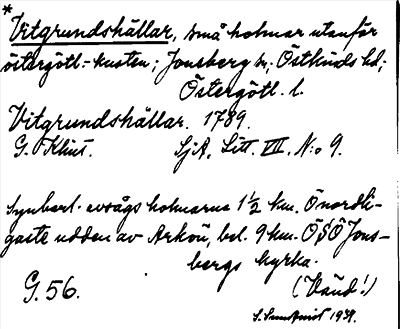 *Vitgrundshällar, små holmar utanför
östergötl.-kusten; Jonsberg sn, Östkinds hd;
Östergötl. l.
Vitgrundshällar. 1789.
G. Klint. SjA, Litt. VII. N:o 9.
Synbarl. avsågs holmarna 1 1/2 km. Ö nordli-
gaste udden av Arkön, bel. 9 km. ÖSÖ Jons-
bergs kyrka.
G. 56. (Vänd!)
S. Sundqvist 1939.